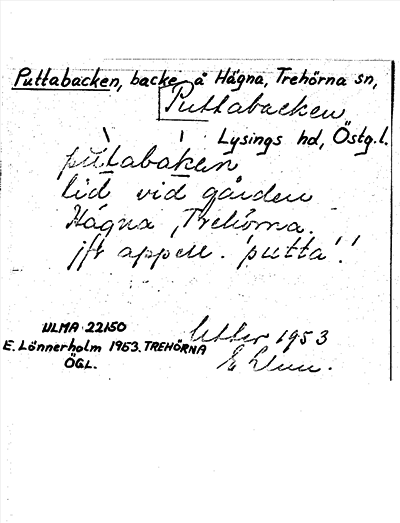 Puttabacken, backe å Hägna, Trehörna sn,
Puttabacken
Lysings hd, Östg.l.
putabaken
lid vid gården
Hägna, Trehörna.
jfr appell. 'putta'!
ULMA 22150
E. Lönnerholm 1953. TREHÖRNA
ÖGL.
1953